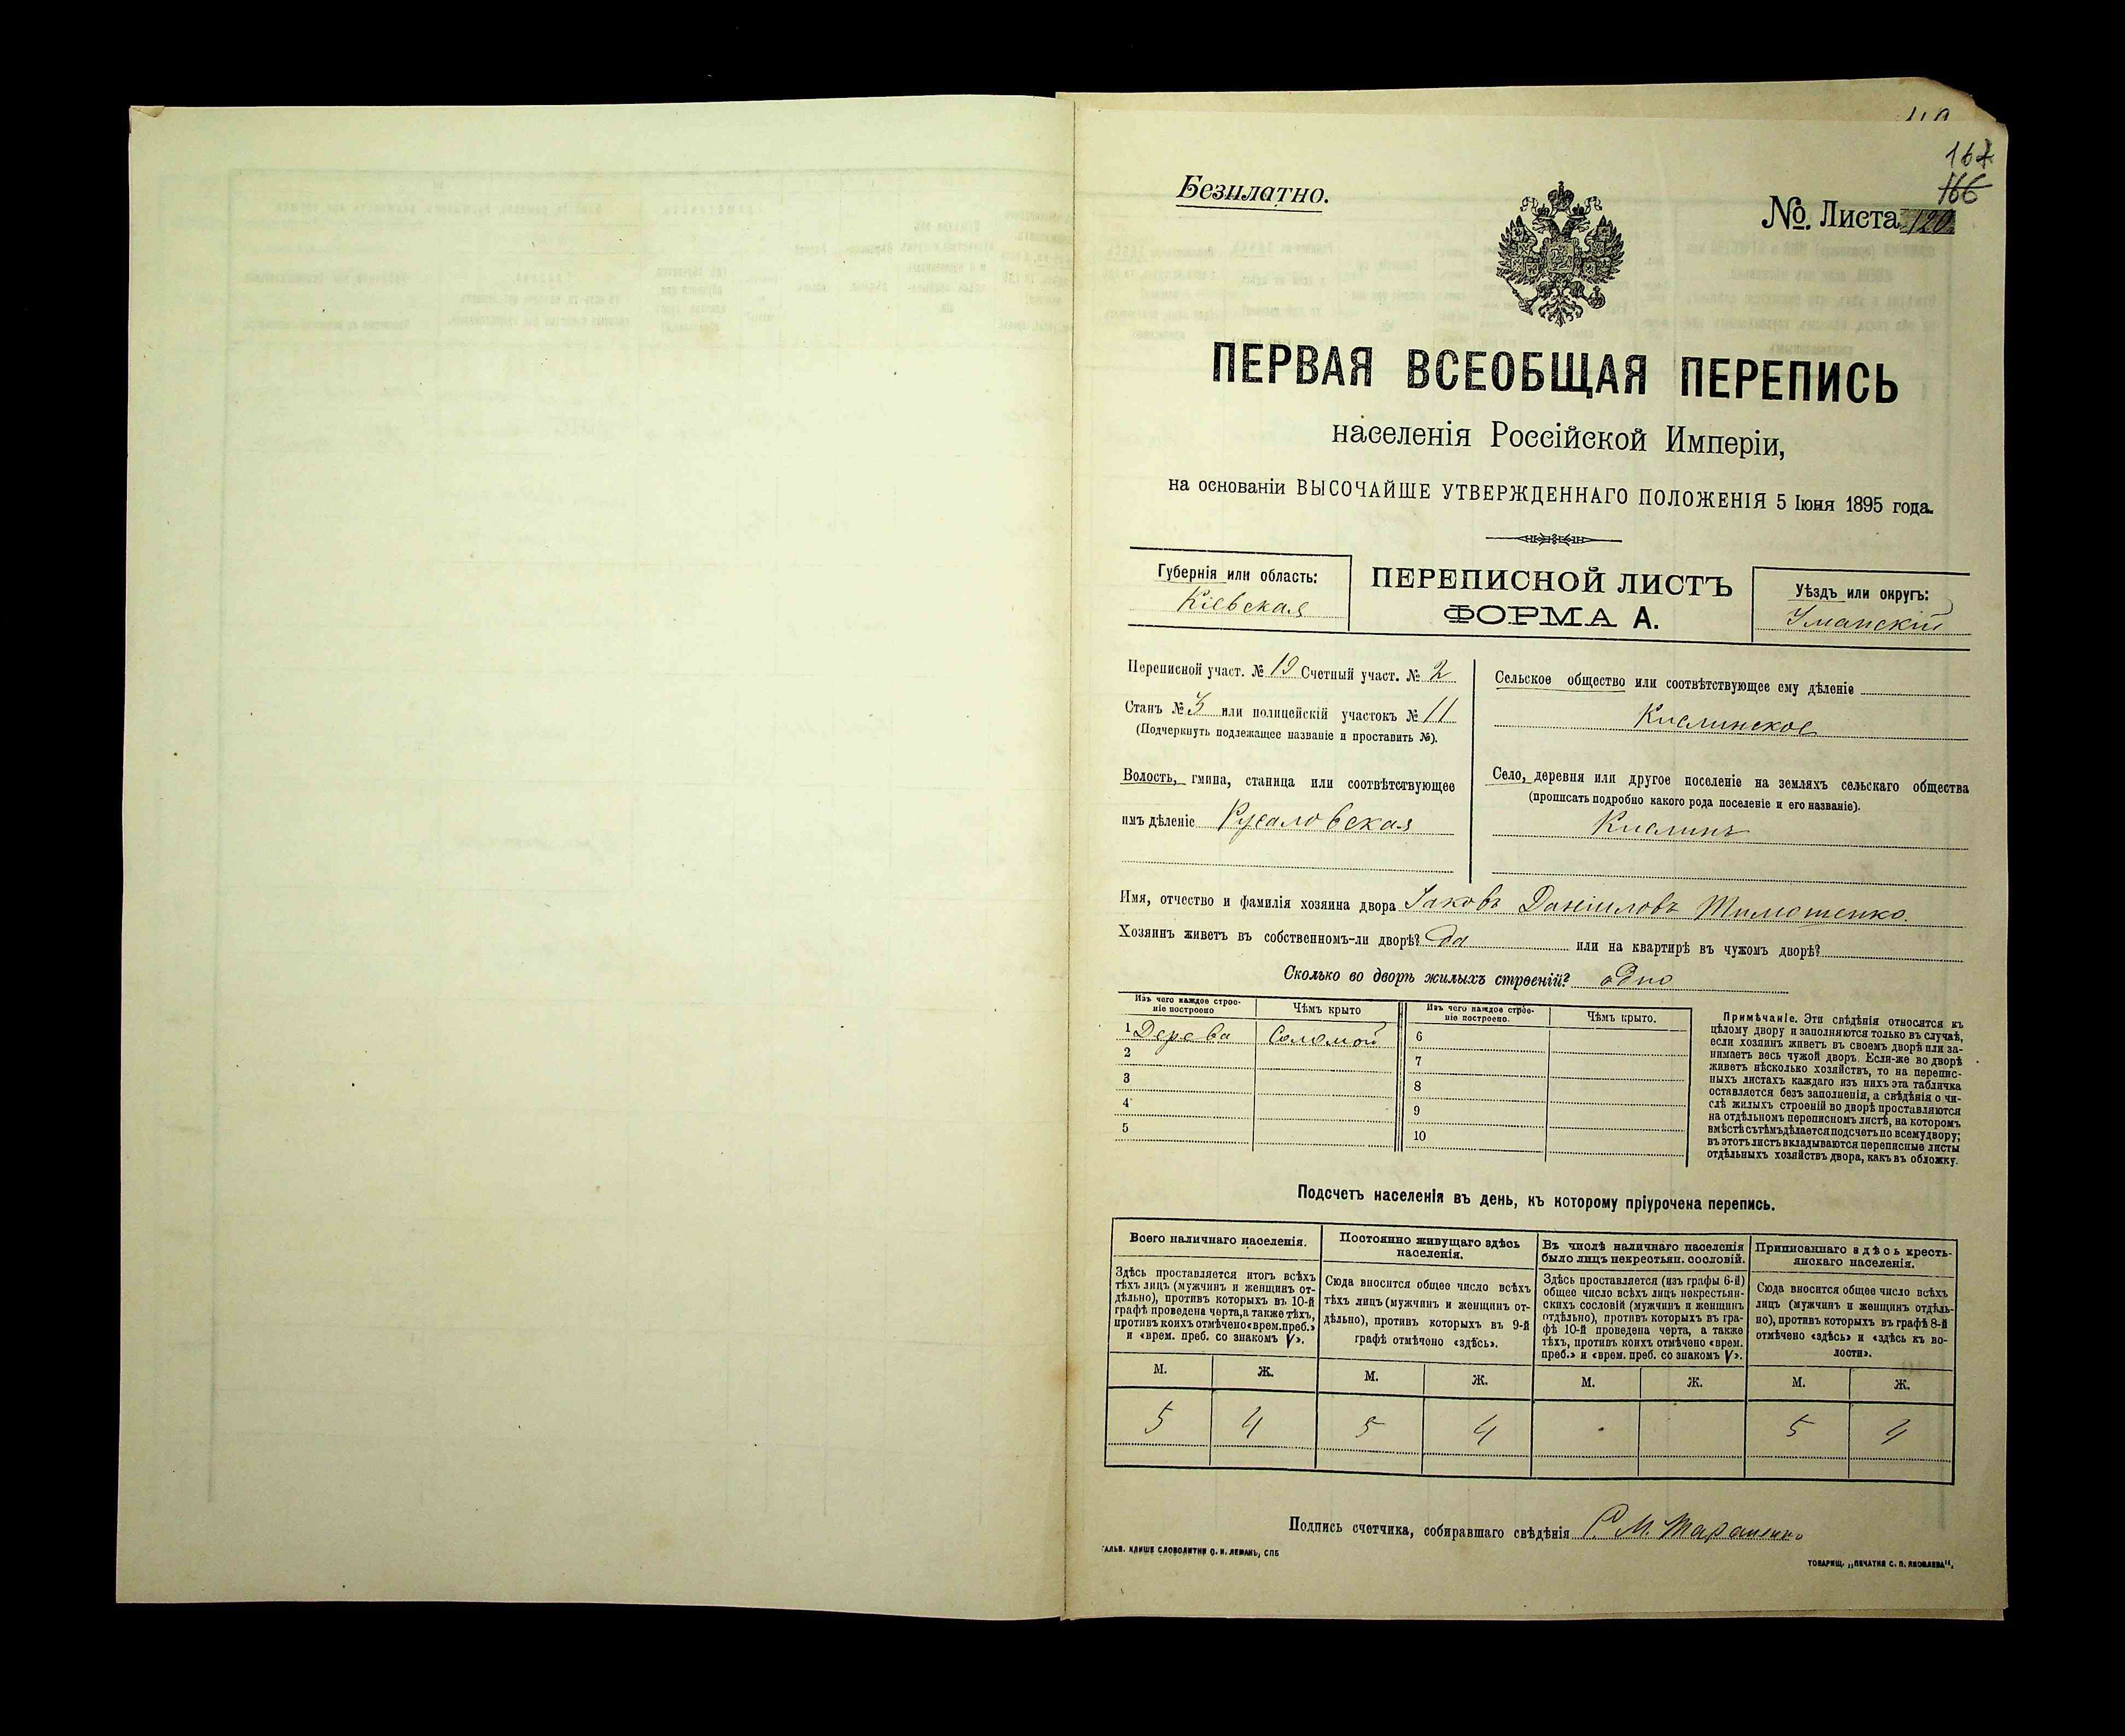 167
166
Безплатно.
№. Листа 120
ПЕРВАЯ ВСЕОБЩАЯ ПЕРЕПИСЬ
населенія Россійской Имперіи,
на основаніи ВЫСОЧАЙШЕ УТВЕРЖДЕННАГО ПОЛОЖЕНІЯ 5 Іюня 1895 года.
Губернія или область:
Кіевская
ПЕРЕПИСНОЙ ЛИСТЪ
ФОРМА А.
Уѣздъ или округъ:
Уманскій
Переписной участ. № 19 Счетный участ. № 2
Станъ № 3 или полицейскій участокъ № 11
(Подчеркнуть подлежащее названіе и проставить №).
Сельское общество или соотвѣтствующее ему дѣленіе
Кислинское
Волость, гмина, станица или соотвѣтствующее
имъ дѣленіе Русаловская
Село, деревня или другое поселеніе на земляхъ сельскаго общества
(прописать подробно какого рода поселеніе и его названіе).
Кислинъ
Имя, отчество и фамилія хозяина двора Іаковъ Даніиловъ Тимошенко.
Хозяинъ живетъ въ собственномъ-ли дворѣ? да или на квартирѣ въ чужомъ дворѣ?
Сколько во дворѣ жилыхъ строеній? одно
Изъ чего каждое строе-
ніе построено
Чѣмъ крыто
Изъ чего каждое строе-
ніе построено.
Чѣмъ крыто.
1 Дерева Соломой
2
3
4
5
6
7
8
9
10
Примѣчаніе. Эти свѣдѣнія относятся къ
цѣлому двору и заполняются только въ случаѣ,
если хозяинъ живетъ въ своемъ дворѣ или за-
нимаетъ весь чужой дворъ. Если-же во дворѣ
живетъ нѣсколько хозяйствъ, то на перепис-
ныхъ листахъ каждаго изъ нихъ эта табличка
оставляется безъ заполненія, а свѣдѣнія о чи-
слѣ жилыхъ строеній во дворѣ проставляются
на отдѣльномъ переписномъ листѣ, на которомъ
вмѣстѣ съ тѣмъ дѣлается подсчетъ по всему двору;
въ этотъ листъ вкладываются переписные листы
отдѣльныхъ хозяйствъ двора, какъ въ обложку.
Подсчетъ населенія въ день, къ которому пріурочена перепись.
Всего наличнаго населенія.
Здѣсь проставляется итогъ всѣхъ
тѣхъ лицъ (мужчинъ и женщинъ от-
дѣльно), противъ которыхъ въ 10-й
графѣ проведена черта, а также тѣхъ,
противъ коихъ отмѣчено «врем. преб.»
и «врем. преб. со знакомъ V».
Постоянно живущаго здѣсь
населенія.
Сюда вносится общее число всѣхъ
тѣхъ лицъ (мужчинъ и женщинъ от-
дѣльно), противъ которыхъ въ 9-й
графѣ отмѣчено «здѣсь».
Въ числѣ наличнаго населенія
было лицъ некрестьян. сословій.
Здѣсь проставляется (изъ графы 6-й)
общее число всѣхъ лицъ некрестьян-
скихъ сословій (мужчинъ и женщинъ
отдѣльно), противъ которыхъ въ гра-
фѣ 10-й проведена черта, а также
тѣхъ, противъ коихъ отмѣчено «врем.
преб.» и «врем. преб. со знакомъ V».
Приписаннаго здѣсь кресть-
янскаго населенія.
Сюда вносится общее число всѣхъ
лицъ (мужчинъ и женщинъ отдѣль-
но), противъ которыхъ въ графѣ 8-й
отмѣчено «здѣсь» и «здѣсь къ во-
лости».
М. Ж. М. Ж. М. Ж. М. Ж.
5 4 5 4 5 4
Подпись счетчика, собиравшаго свѣдѣнія
ГАЛЬВ. КЛИШЕ СЛОВОЛИТНИ О. И. ЛЕМАНЪ, СПБ
ТОВАРИЩ. „ПЕЧАТНЯ С. П. ЯКОВЛЕВА“.